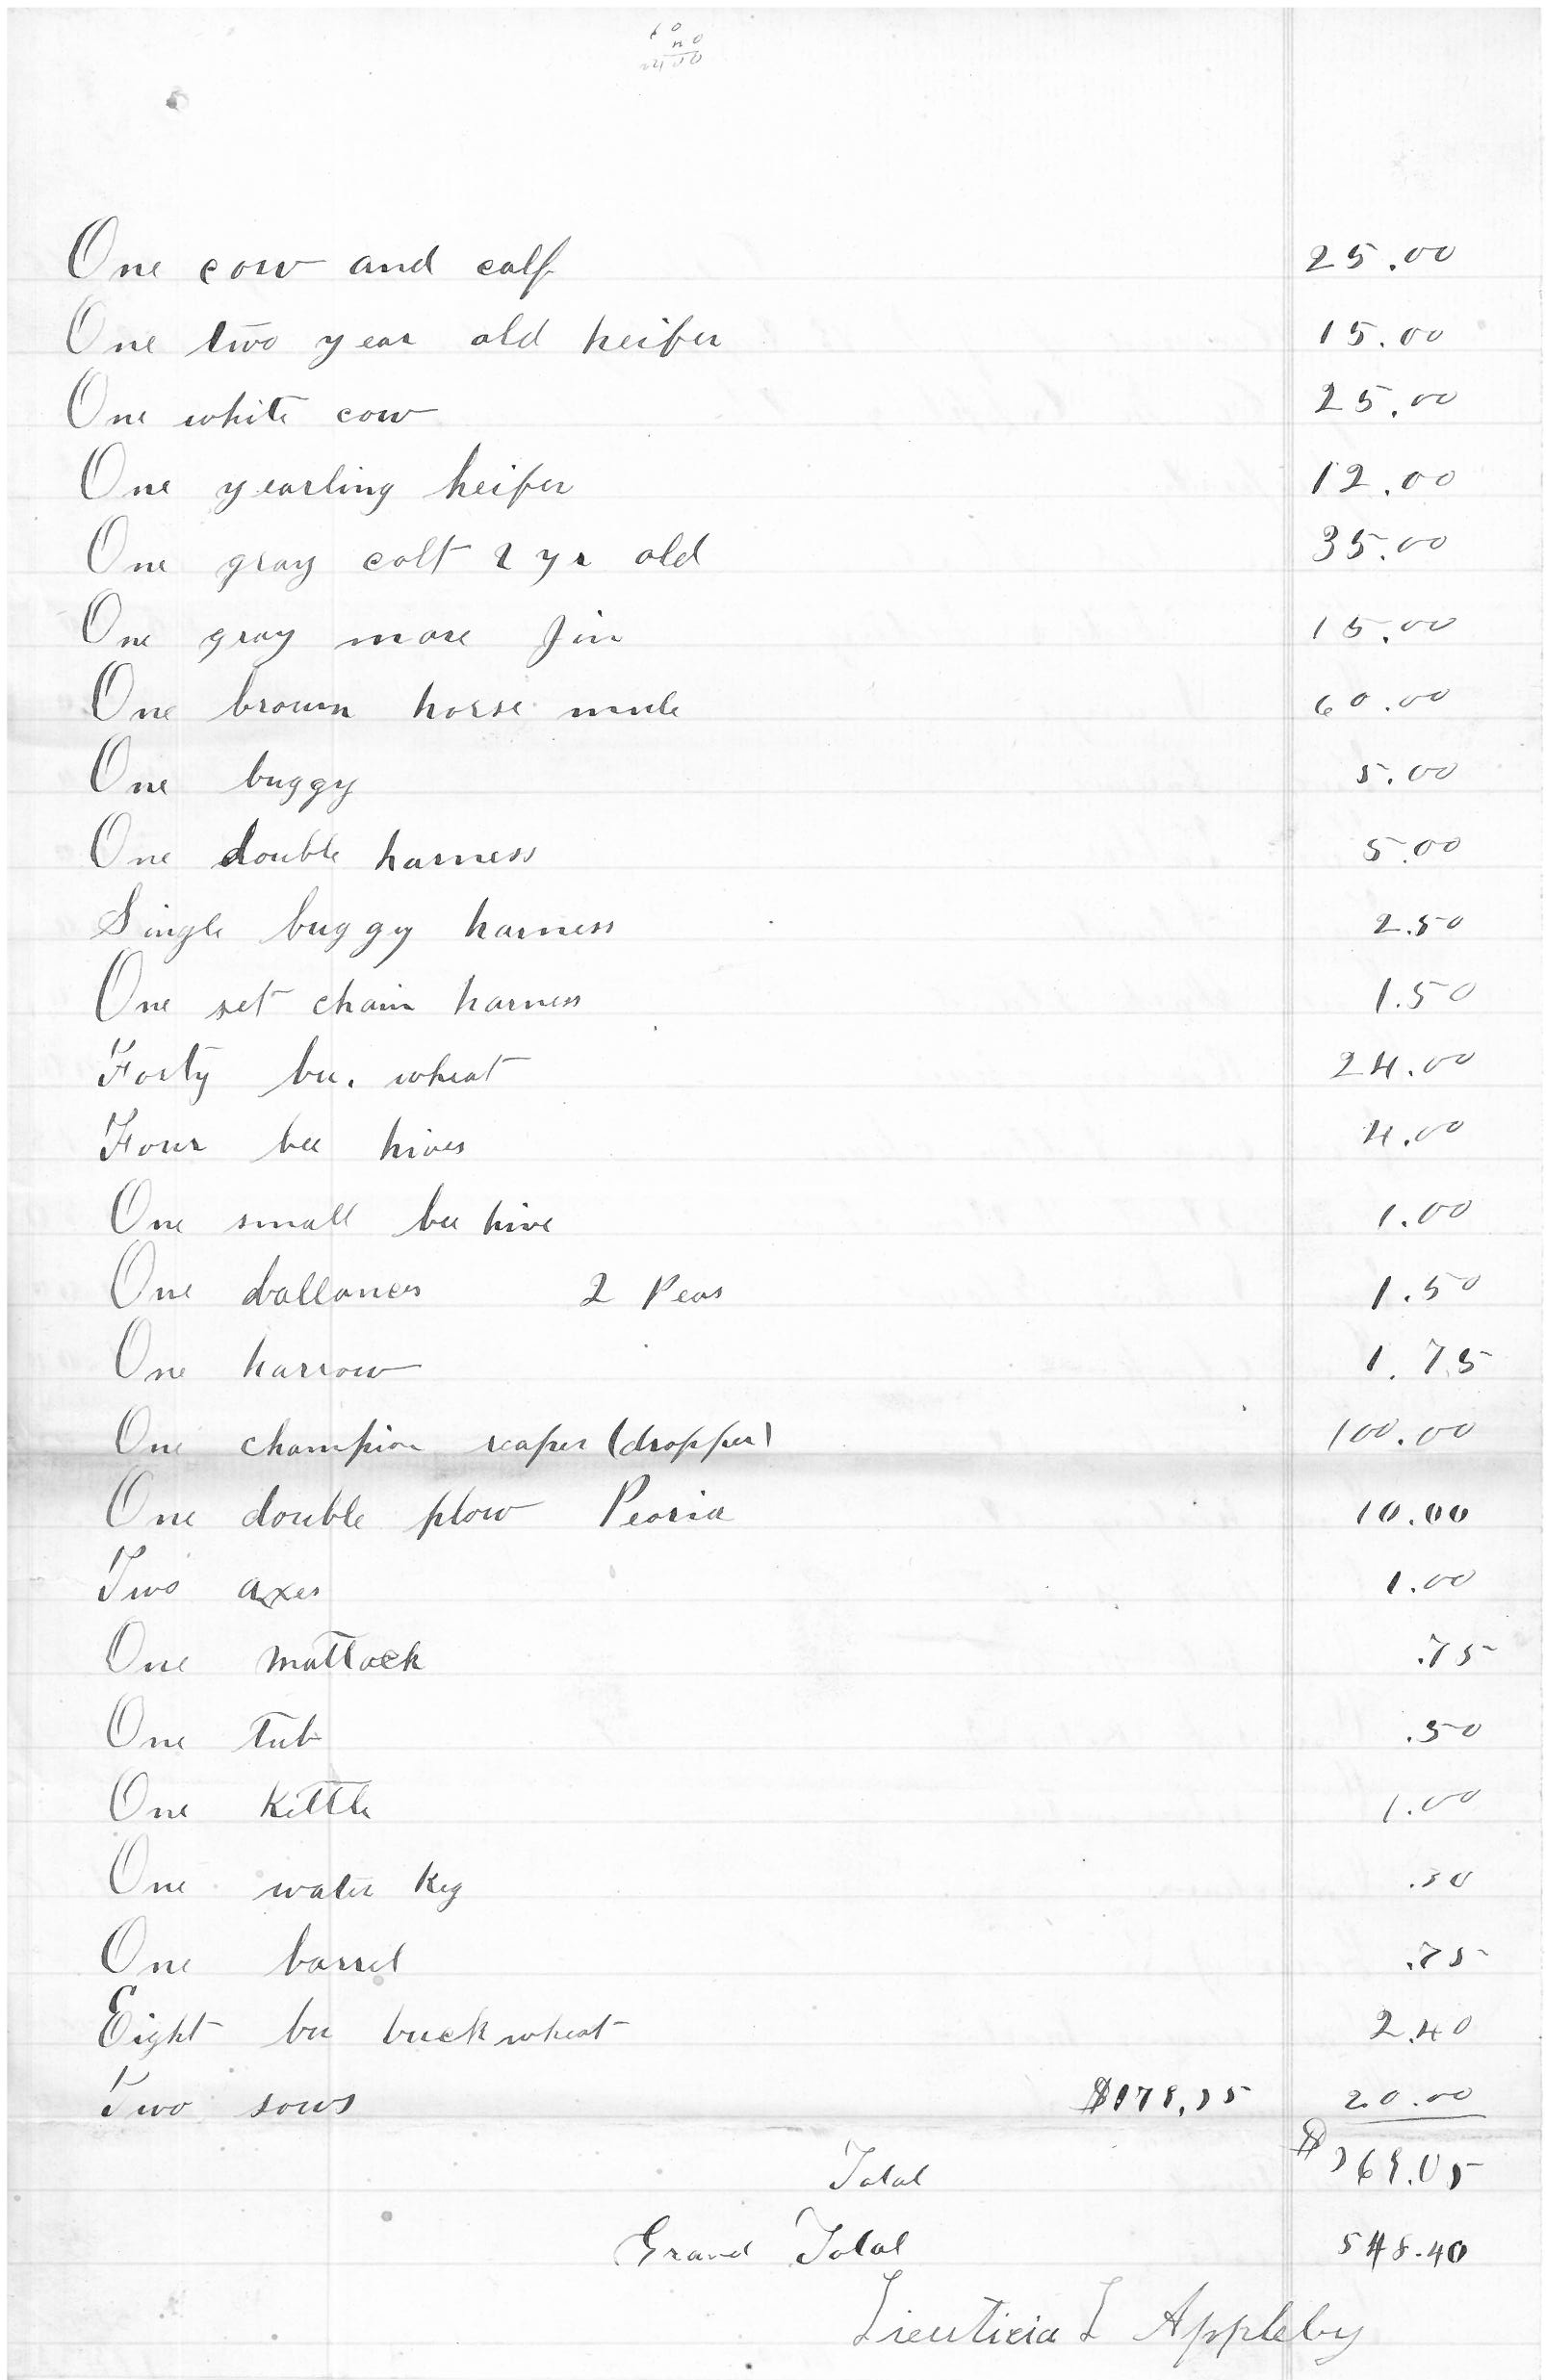 60
40
2400
One cow and calf 25.00
One two year old heifer 15.00
One white cow 25.00
One yearling heifer 12.00
One gray colt 2 yr old 35.00
One gray mare Jin 15.00
One brown horse mule 60.00
One buggy 5.00
One double harness 5.00
Single buggy harness 2.50
One set chain harness 1.50
Forty bu. wheat 24.00
Four bee hives 4.00
One small bee hive 1.00
One ballances 2 Peas 1.50
One harrow 1.75
One champion reaper (dropper) 100.00
One double plow Peoria 10.00
Two axes 1.00
One mattock .75
One tub .50
One Kettle 1.00
One water Keg .30
One barrel .75
Eight bu buckwheat 2.40
Two sows $179.35 20.00
Total $369.05
Grand Total 548.40
L Appleby